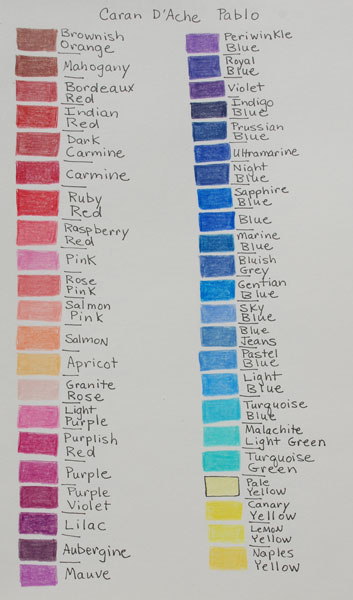 Caran D'Ache Pablo
Brownish
Orange
Mahogany
Bordeaux
Red
Indian
Red
Dark
Carmine
Carmine
Ruby
Red
Raspberry
Red
Pink
Rose
Pink
Salmon
Pink
Salmon
Apricot
Granite
Rose
Light
Purple
Purplish
Red
Purple
Purple
Violet
Lilac
Aubergine
Mauve
Periwinkle
Blue
Royal
Blue
Violet
Indigo
Blue
Prussian
Blue
Ultramarine
Night
Blue
Sapphire
Blue
Blue
Marine
Blue
Bluish
Grey
Gentian
Blue
Sky
Blue
Blue
Jeans
Pastel
Blue
Light
Blue
Turquoise
Blue
Malachite
Light Green
Turquoise
Green
Pale
Yellow
Canary
Yellow
Lemon
Yellow
Naples
Yellow